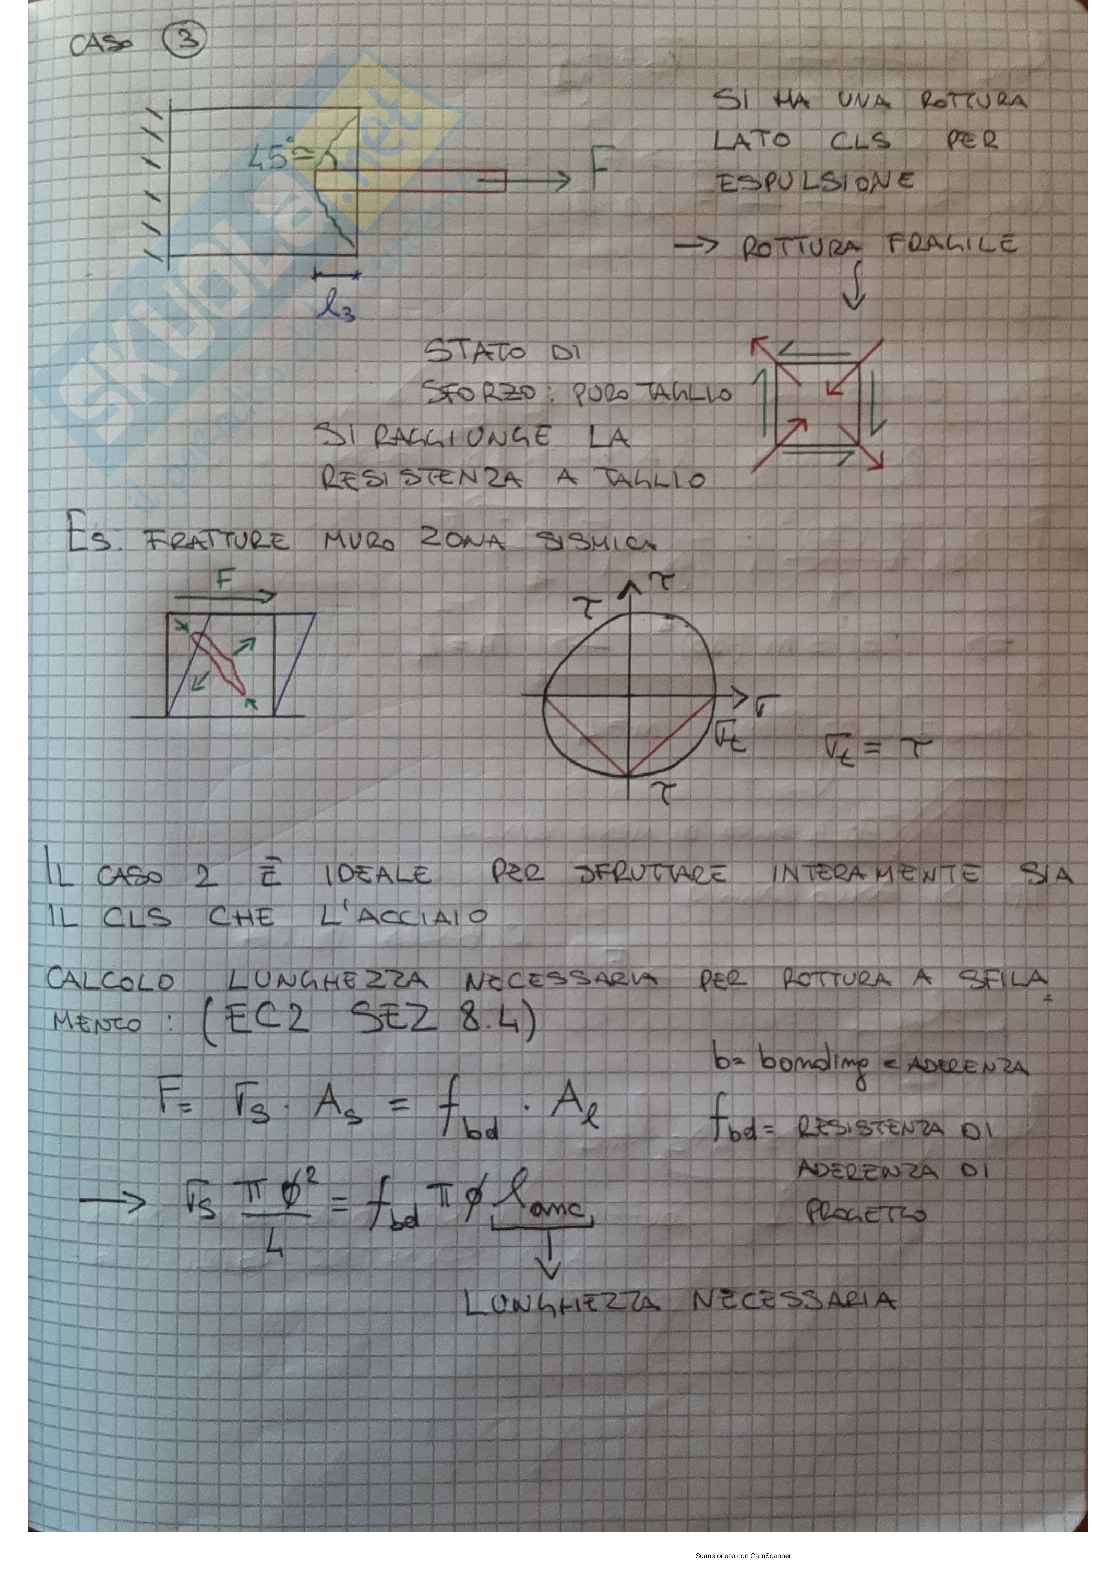 CASO 3
45°=
F
l3
SI HA UNA ROTTURA
LATO CLS PER
ESPULSIONE
→ ROTTURA FRAGILE
STATO DI
SFORZO: PURO TAGLIO
SI RAGGIUNGE LA
RESISTENZA A TAGLIO
ES. FRATTURE MURO ZONA SISMICA
F
τ
τ
σ
σt
τ
σt = τ
IL CASO 2 È IDEALE PER SFRUTTARE INTERAMENTE SIA
IL CLS CHE L'ACCIAIO
CALCOLO LUNGHEZZA NECESSARIA PER ROTTURA A SFILA
MENTO: (EC2 SEZ 8.4)
b= bonding = ADERENZA
F= σs · As = fbd · Al
fbd = RESISTENZA DI
ADERENZA DI
PROGETTO
→ σs πφ²/4 = fbd πφ lanc
LUNGHEZZA NECESSARIA
SKUOLA.net
Scansionato con CamScanner